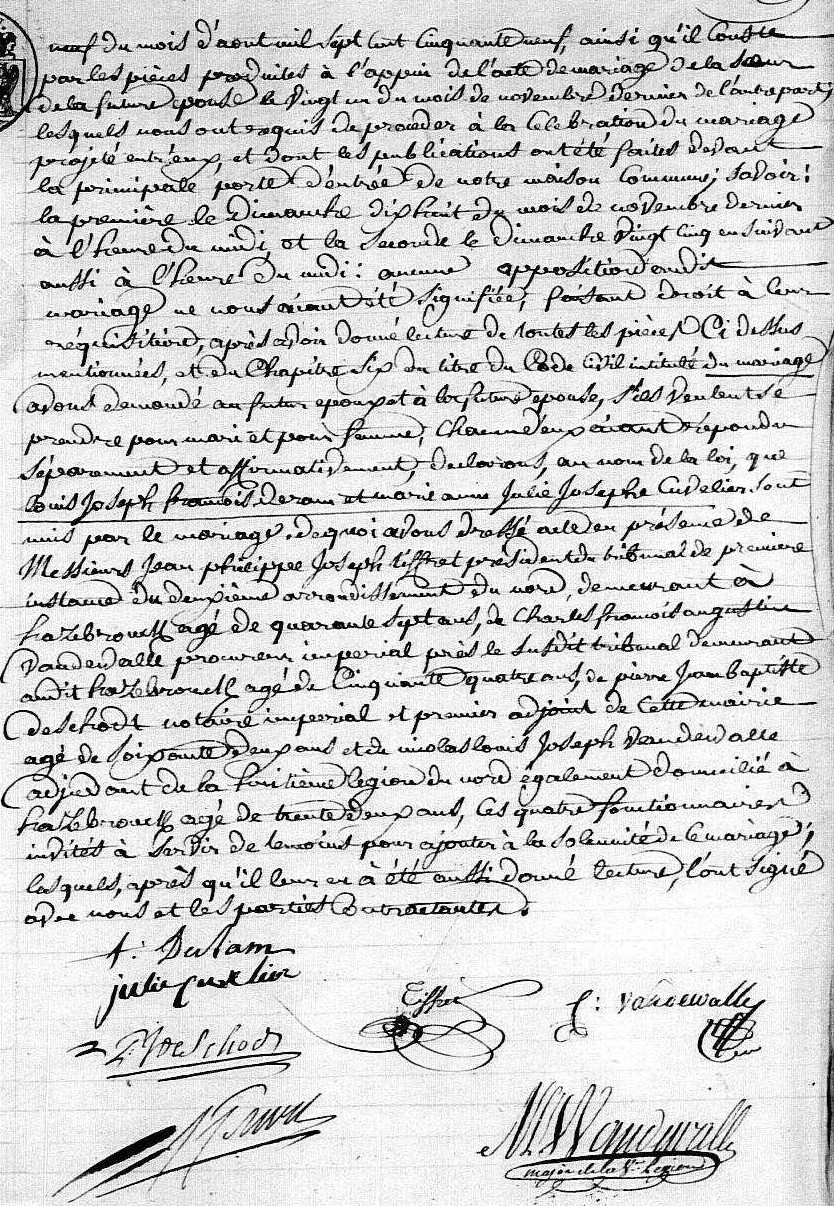 neuf du mois d'aout mil sept cent cinquante neuf, ainsi qu'il Conste
par les pièces produites à l'appui de l'acte de mariage de la sœur
de la future epouse le vingt un du mois de novembre dernier de l'autre part;
lesquels nous ont requis de procéder à la Célébration du mariage
projeté entr'eux, et dont les publications ont été faites devant
la principale porte d'entrée de notre maison Commune; savoir:
la première le Dimanche dix huit du mois de novembre dernier
à l'heure du midi, et la seconde le dimanche vingt cinq ensuivant
aussi à l'heure du midi: aucune opposition audit
mariage ne nous aiant été signifiée, faisant droit à leur
réquisitoire, après avoir donné lecture de toutes les pièces Ci dessus
mentionnées, et du Chapitre six du titre du Code Civil intitulé du mariage
avons demandé au futur epoux et à la future epouse, s'ils veulent se
prendre pour mari et pour femme, Chacun d'eux aiant répondu
séparement et affirmativement, declarons, au nom de la loi, que
Louis Joseph francois deram et marie anne Julie Josephe Cuvelier sont
unis par le mariage. de quoi avons dressé acte en présence de
Messieurs Jean philippe Joseph tiffret président du tribunal de première
instance du deuxième arrondissement du nord, demeurant à
hazebrouck agé de quarante sept ans, de Charles francois augustin
Vandewalle procureur imperial près le susdit tribunal demeurant
audit hazebrouck agé de Cinquante quatre ans, de pierre Jean Baptiste
deschodt notaire imperial et premier adjoint de Cette mairie
agé de soixante deux ans et de nicolas louis Joseph Vandewalle
adjudant de la huitième légion du nord également domicilié à
hazebrouck agé de trente deux ans, Ces quatre fonctionnaires
invités à servir de temoins pour ajouter à la solennité de Ce mariage;
lesquels, après qu'il leur en à été aussi donné lecture, l'ont signé
avec nous et les parties Contractantes.
f: Deram
julie Cuvelier
Tiffret
C: vandewalle
P. J. deschodt
NL Vandewalle
major de la Legion